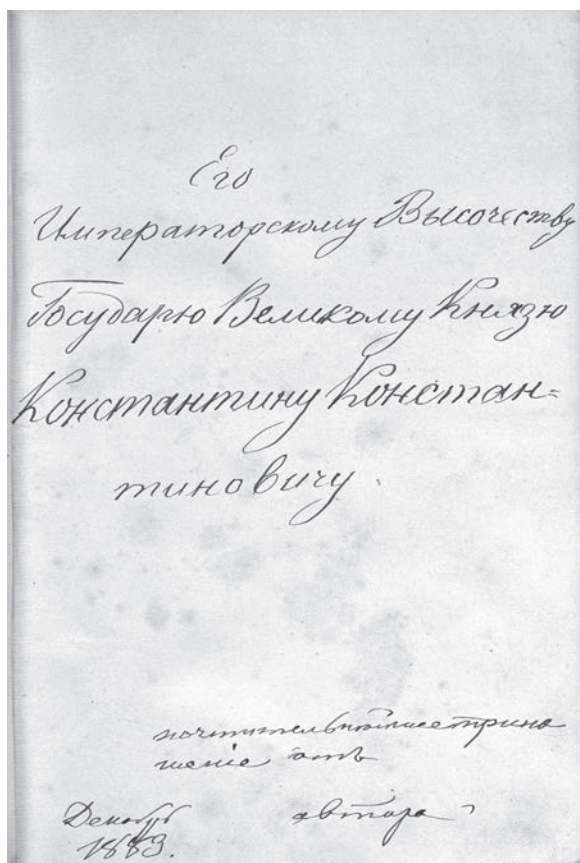 Его
Императорскому Высочеству
Государю Великому Князю
Константину Констан=
тиновичу.
почтительнѣйшее прино
шеніе отъ
автора
Декабрь
1889.